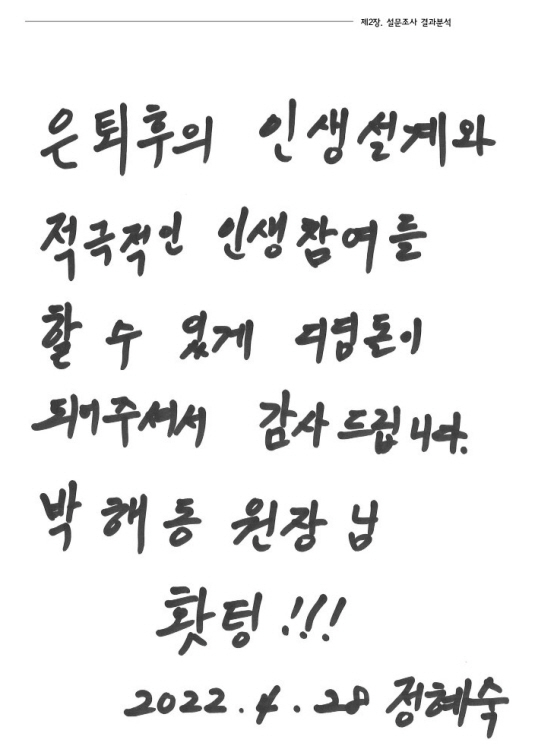 제2장. 설문조사 결과분석
은퇴후의 인생설계와
적극적인 인생참여를
할 수 있게 디딤돌이
되어주셔서 감사드립니다.
박해동 원장님
홧팅!!!
2022.4.28 정혜숙